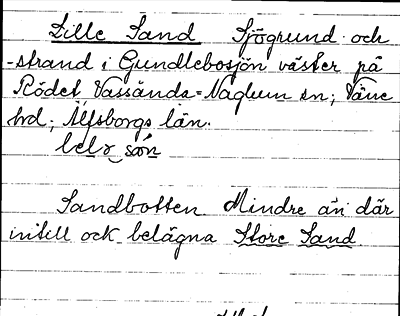 Lille Sand Sjögrund och
-strand i Gundlebosjön väster på
Rödet Vassända-Naglum sn; Väne
hd; Älfsborgs län.
Sandbotten Mindre än där
intill och belägna Store Sand